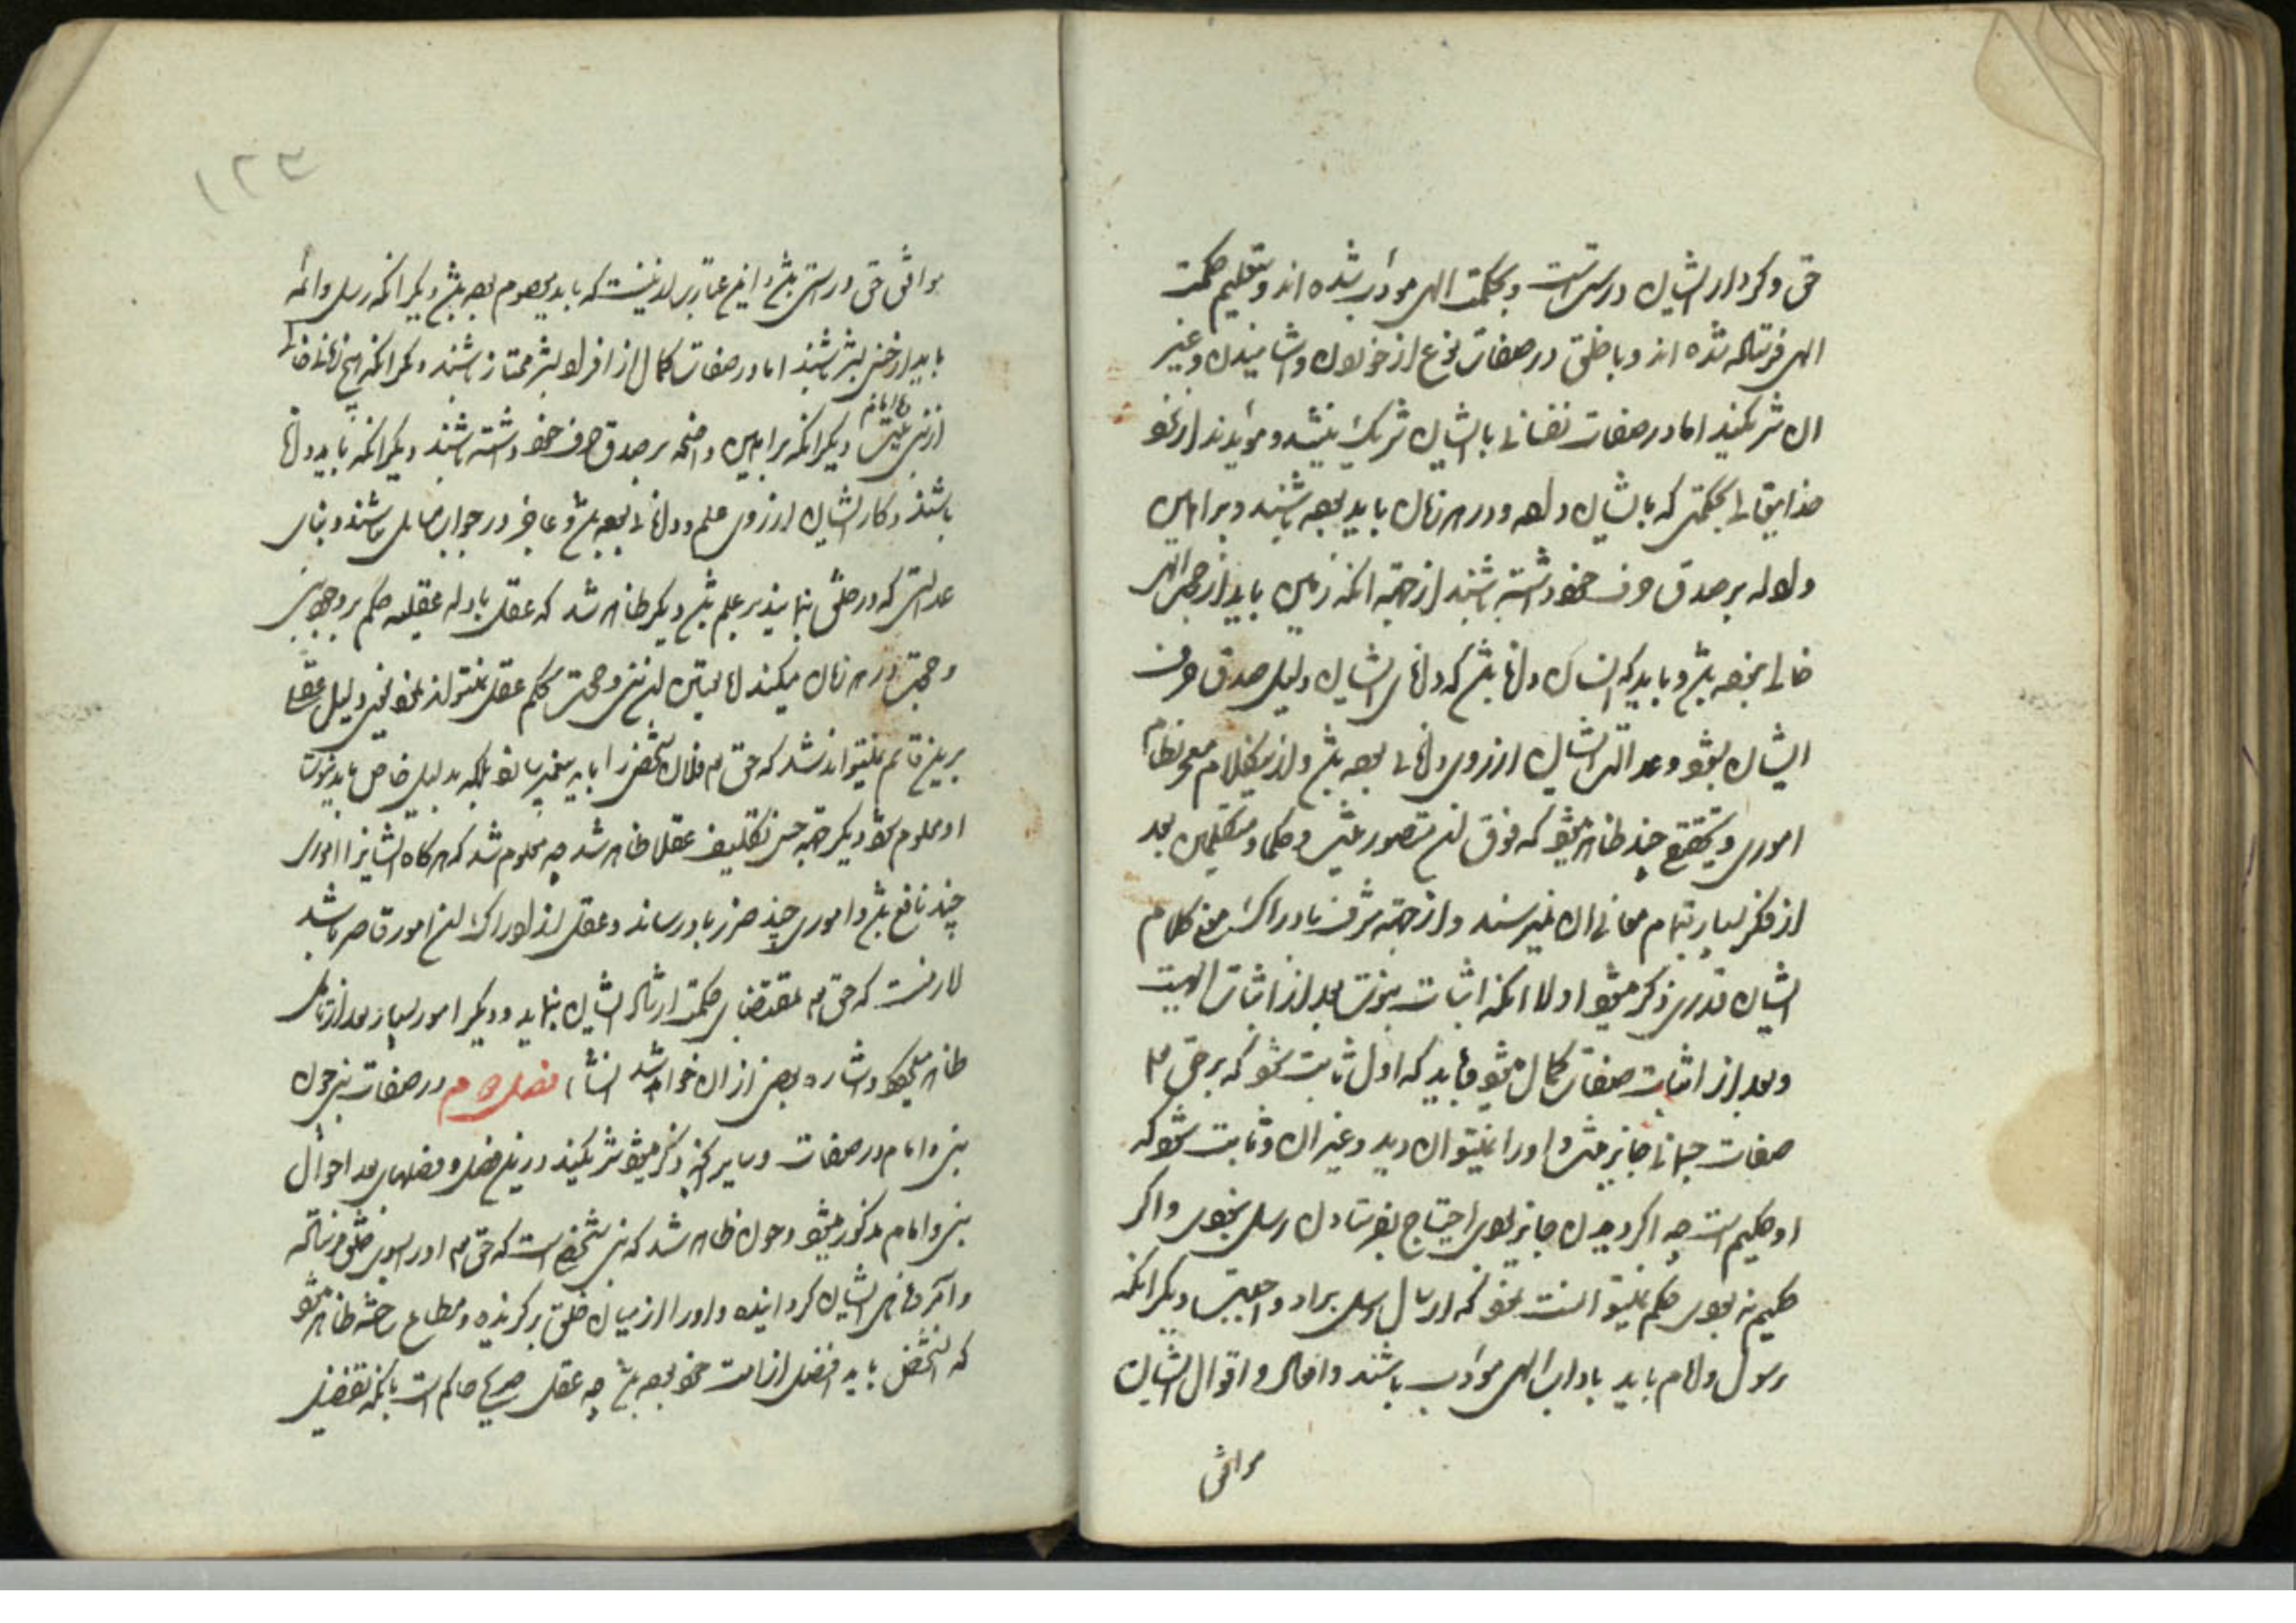 حق و کردار ایشان درستست و بحکمت الهی مؤدب شده اند و بتعلیم حکمت
الهی فرستاده شده اند و با خلق در صفات نوع از خوردن و اشامیدن و غیر
ان شریکند اما در صفات نفسانی با ایشان شریک نیستند و مؤیدند از نزد
خدایتعالی بحکمتی که بایشان داده و در هر زمان باید بوده باشند و براهین
و ادله بر صدق حرف خود داشته باشند از جهة انکه زمین باید از حجة الهی
خالی نبوده باشد و باید که انسان دانا باشد که دانائی ایشان دلیل صدق حرف
ایشان بشود و عدالت ایشان از روی دانائی بوده باشد و ازین کلام معجز نظام
اموری و تحقیق چند ظاهر میشود که فوق ان متصور نیست و حکما و متکلمین بعد
از فکر بسیار بتمام معانی ان نمیرسند و از جهة شرف بادراک معنی کلام
ایشان قدری ذکر میشود اولا انکه اثبات نبوت بعد از اثبات الهیت
و بعد از اثبات صفات کمال میشود و باید که اول ثابت شود که بر حق تع
صفات جسمانی جایز نیست و او را نمیتوان دید و غیر ان و ثابت شود که
او حکیم است چه اگر دیدن جایز بودی احتیاج بفرستادن رسل نبودی و اگر
حکیم نه بودی حکم نمیتوانست نمود که ارسال رسل براو واجبست دیگر انکه
رسول و امام باید باداب الهی مؤدب باشند و افعال و اقوال ایشان
موافق
۱۲۳
موافق حق و راستی باشد و این عبارت از انیست که باید معصوم بوده باشد دیگر انکه رسل و ائمه
باید از جنس بشر باشند اما در صفات کمال از افراد بشر ممتاز باشند دیگر انکه هیچ زمانه خالی
از نبی و امام نیست دیگر انکه براهین واضحه بر صدق حرف خود داشته باشند دیگر انکه باید دانا
باشند و کار ایشان از روی علم و دانائی بوده باشد و عاجز در جواب مسایل نباشند و بنای
عدالتی که در خلق بنمایند بر علم باشد دیگر ظاهر شد که عقل بادله عقلیه حکم بر وجود نبی
و حجت در هر زمان میکند اما تعیین ان نبی و حجت بحکم عقل نمیتواند نمود یعنی دلیل عقلی
برین قائم نمیتواند شد که حق تع فلان شخص را باید پیغمبر سازد بلکه بدلیل خاص باید نبوت
او معلوم شود دیگر جهة حسن تکلیف عقلا ظاهر شد چه معلوم شد که هرگاه ایشانرا اموری
چند نافع باشد و اموری چند ضرر باو رساند و عقل از ادراک ان امور قاصر باشد
لازمست که حق تع بمقتضای حکمت ارشاد ایشان بنماید و دیگر امور بسیار بعد از تامل
ظاهر میگردد و اشاره ببعضی از ان خواهد شد انشاء فصل دوم در صفات نبی چون
نبی و امام در صفات و سایر انچه ذکر میشود شریکند درین فصل و فصلهای بعد احوال
نبی و امام مذکور میشود و چون ظاهر شد که نبی شخصی است که حق تع او را بسوی خلق فرستاده
و آمر و ناهی ایشان گردانیده و او را از میان خلق برگزیده و مطاع ساخته ظاهر میشود
که انشخص باید افضل از امت خود بوده باشد چه عقل صریح حاکم است بانکه تفضیل